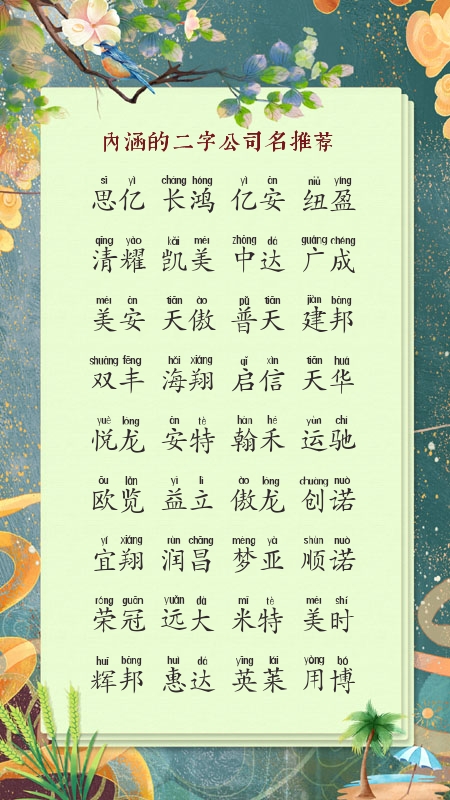 内涵的二字公司名推荐
sī yì cháng hóng yì ān niǔ yíng
思亿 长鸿 亿安 纽盈
qīng yào kǎi měi zhōng dá guǎng chéng
清耀 凯美 中达 广成
měi ān tiān ào pǔ tiān jiàn bāng
美安 天傲 普天 建邦
shuāng fēng hǎi xiáng qǐ xìn tiān huá
双丰 海翔 启信 天华
yuè lóng ān tè hàn hé yùn chí
悦龙 安特 翰禾 运驰
ōu lǎn yì lì ào lóng chuàng nuò
欧览 益立 傲龙 创诺
yí xiáng rùn chāng mèng yà shùn nuò
宜翔 润昌 梦亚 顺诺
róng guān yuǎn dà mǐ tè měi shí
荣冠 远大 米特 美时
huī bāng huì dá yīng lái yòng bó
辉邦 惠达 英莱 用博